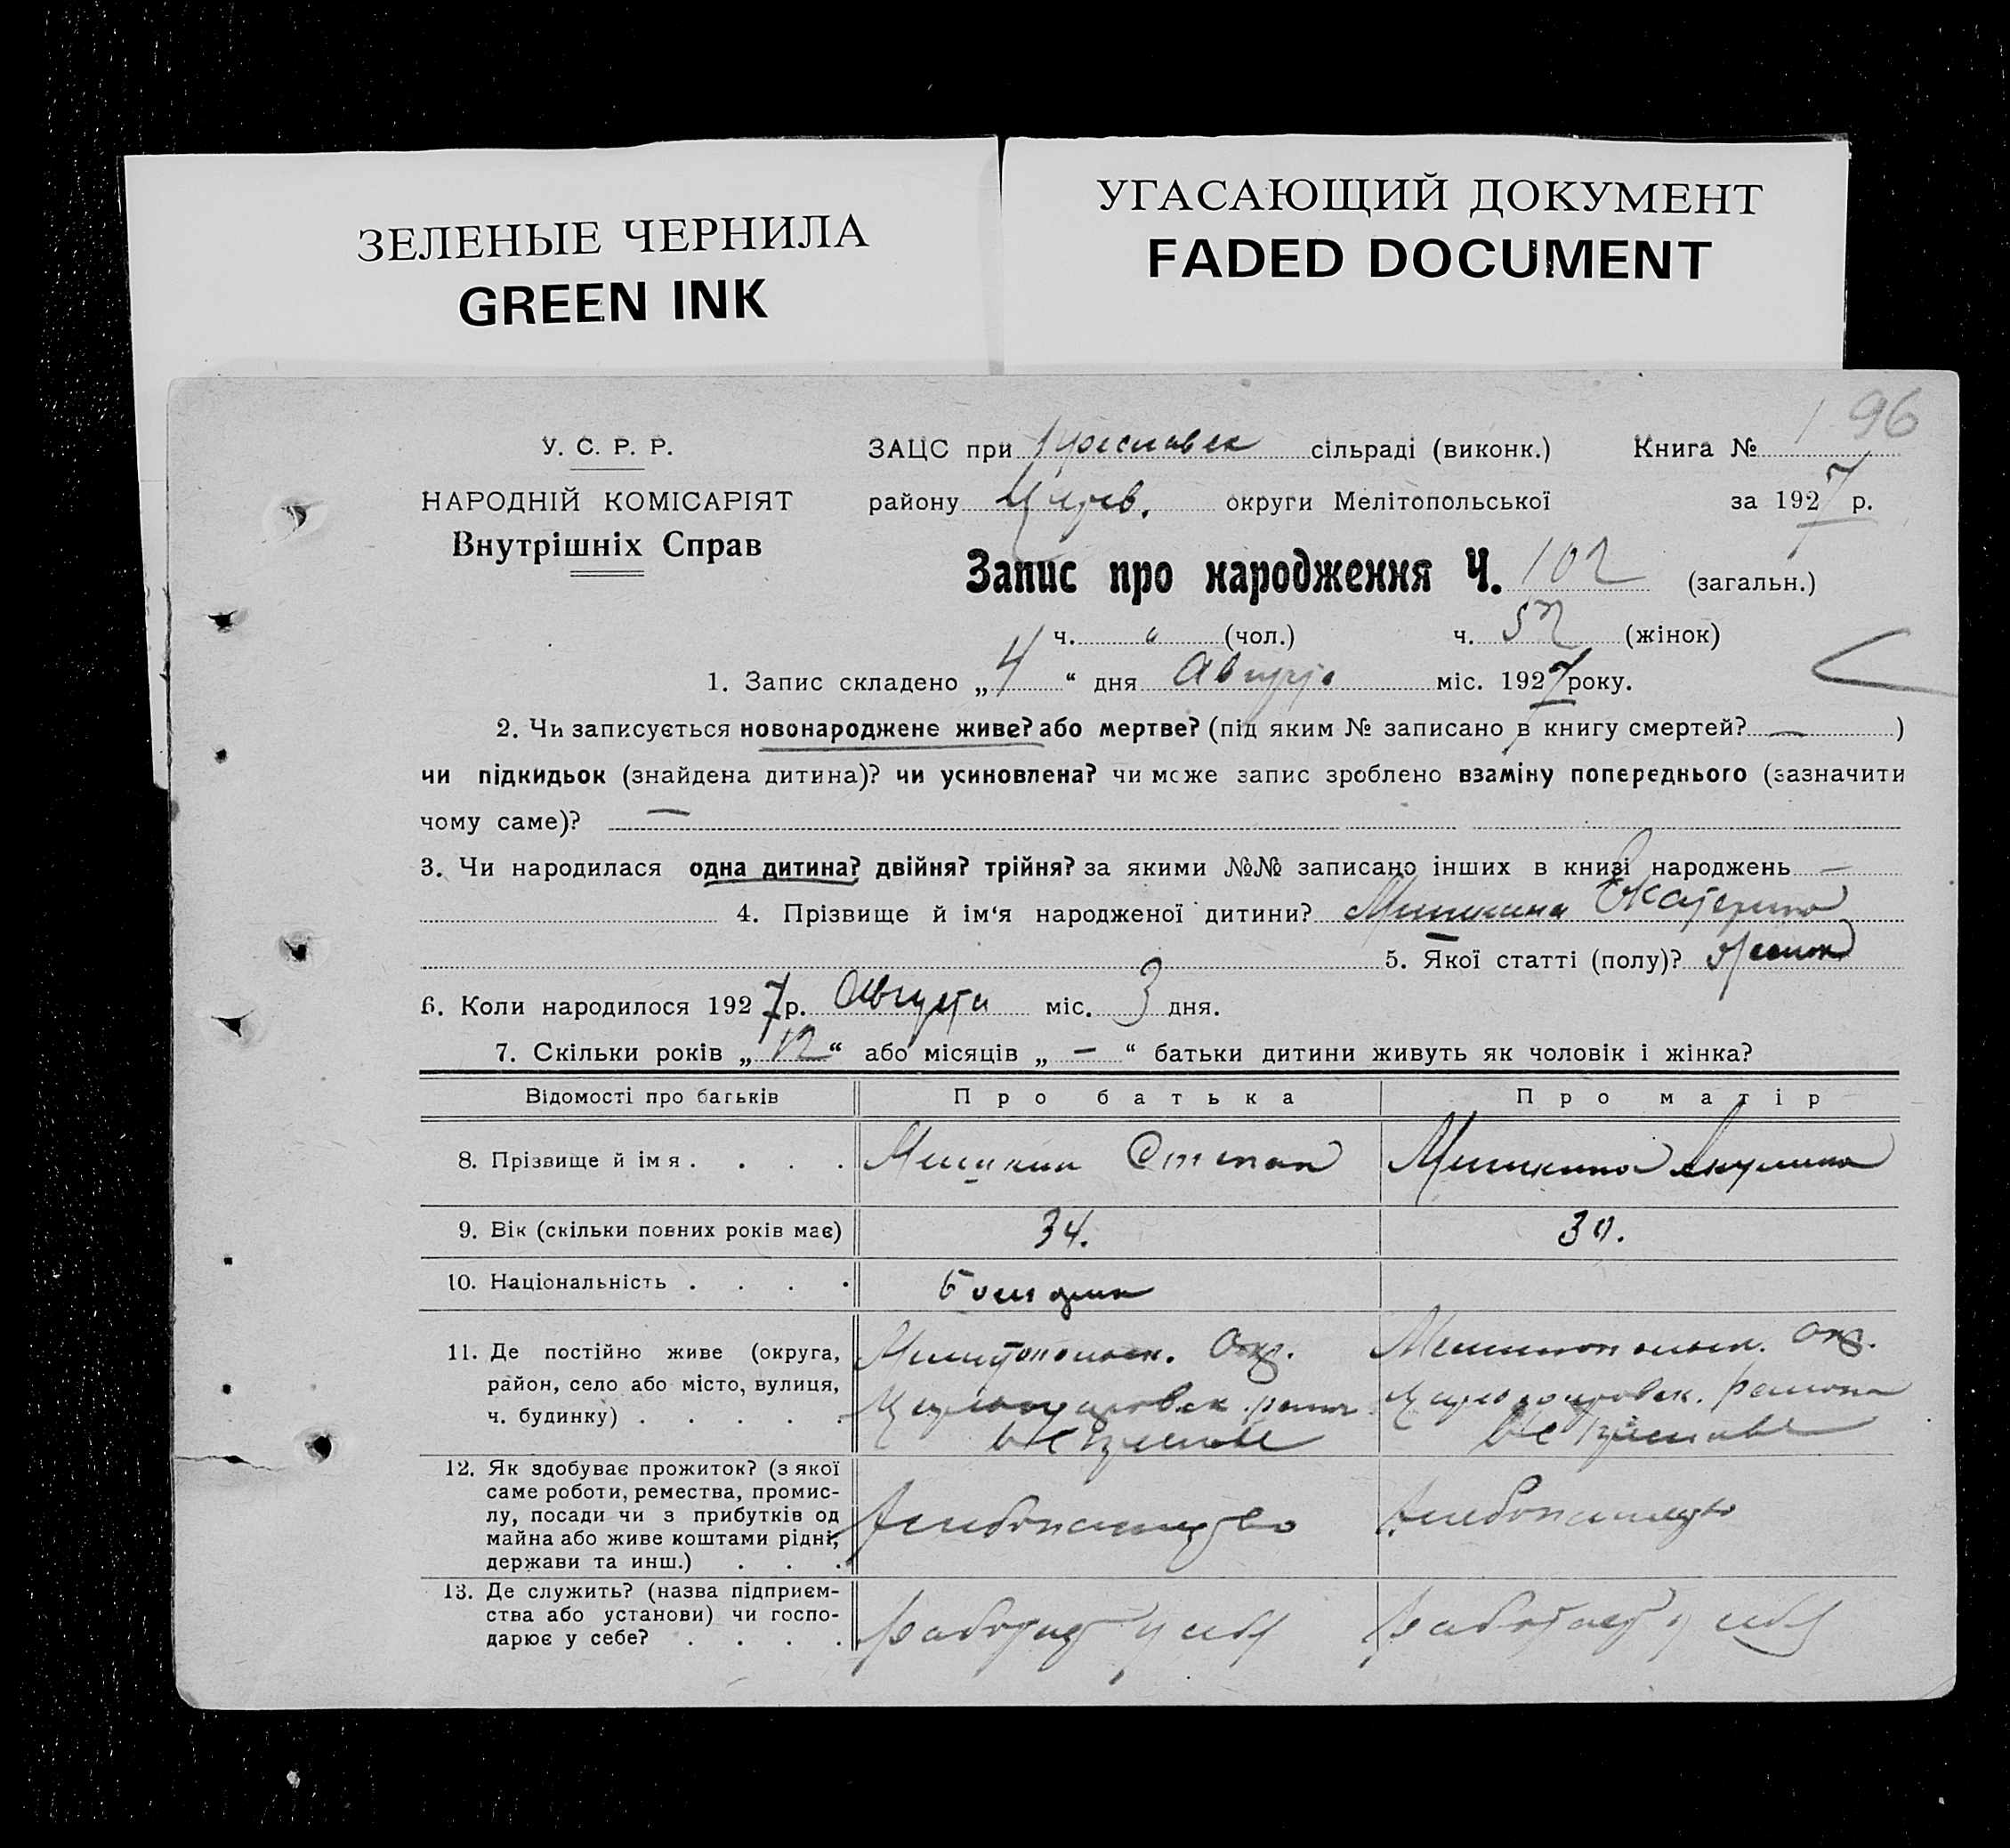 ЗЕЛЕНЫЕ ЧЕРНИЛА
GREEN INK
УГАСАЮЩИЙ ДОКУМЕНТ
FADED DOCUMENT
96
У. С. Р. Р.
НАРОДНІЙ КОМІСАРІЯТ
Внутрішніх Справ
ЗАЦС при сільраді (виконк.) Книга №
району Церев. округи Мелітопольської за 1927 р.
Запис про народження Ч. 102 (загальн.)
ч. " (чол.) ч. 52 (жінок)
1. Запис складено „4“ дня Августа міс. 1927 року.
2. Чи записується новонароджене живе? або мертве? (під яким № записано в книгу смертей? — )
чи підкидьок (знайдена дитина)? чи усиновлена? чи може запис зроблено взаміну попереднього (зазначити
чому саме)? —
3. Чи народилася одна дитина? двійня? трійня? за якими №№ записано інших в книзі народжень —
4. Прізвище й ім‘я народженої дитини? Мишкина Екатерина
5. Якої статті (полу)? женск
6. Коли народилося 1927 р. Августа міс. 3 дня.
7. Скільки років „12“ або місяців „ — “ батьки дитини живуть як чоловік і жінка?
Відомості про батьків Про батька Про матір
8. Прізвище й імя . . . . Мишкин Степан Мишкина Акулина
9. Вік (скільки повних років має) 34. 30.
10. Національність . . . .
11. Де постійно живе (округа, Мелитопольск. Окр. Мелитопольск. Окр.
район, село або місто, вулиця, района
ч. будинку) . . . . .
12. Як здобуває прожиток? (з якої
саме роботи, ремества, промис-
лу, посади чи з прибутків од Хлебопашество Хлебопашество
майна або живе коштами рідні,
держави та инш.) . . .
13. Де служить? (назва підприєм-
ства або установи) чи госпо- работает у себя работает у себя
дарює у себе? . . . .